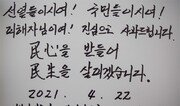 선열들이시여! 국민들이시여!
피해자님이여! 진심으로 사과드립니다.
民心을 받들어
民生을 살피겠습니다.
2021. 4. 22